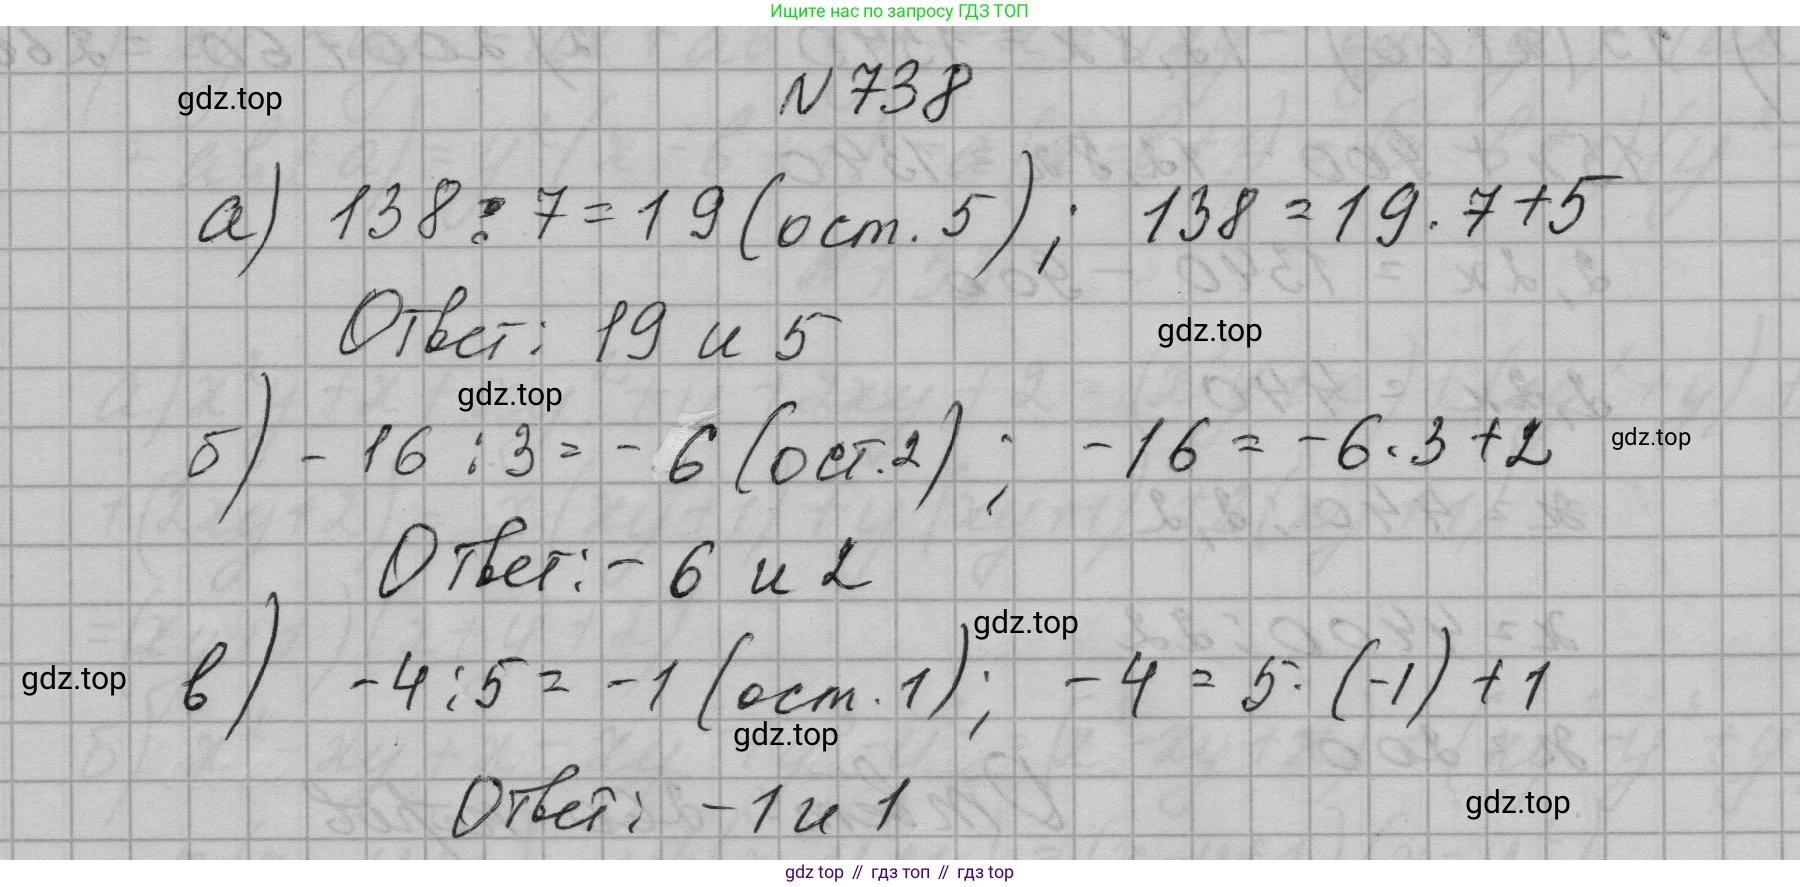 Ищите нас по запросу ГДЗ ТОП
N 738
gdz.top
а) 138 : 7 = 19 (ост. 5) ; 138 = 19 · 7 + 5
Ответ: 19 и 5
gdz.top
gdz.top
б) - 16 : 3 = - 6 (ост. 2) ; - 16 = - 6 · 3 + 2
gdz.top
Ответ: - 6 и 2
gdz.top
gdz.top
в) - 4 : 5 = - 1 (ост. 1) ; - 4 = 5 · (-1) + 1
gdz.top
Ответ: - 1 и 1
gdz.top
gdz top // гдз топ // гдз top